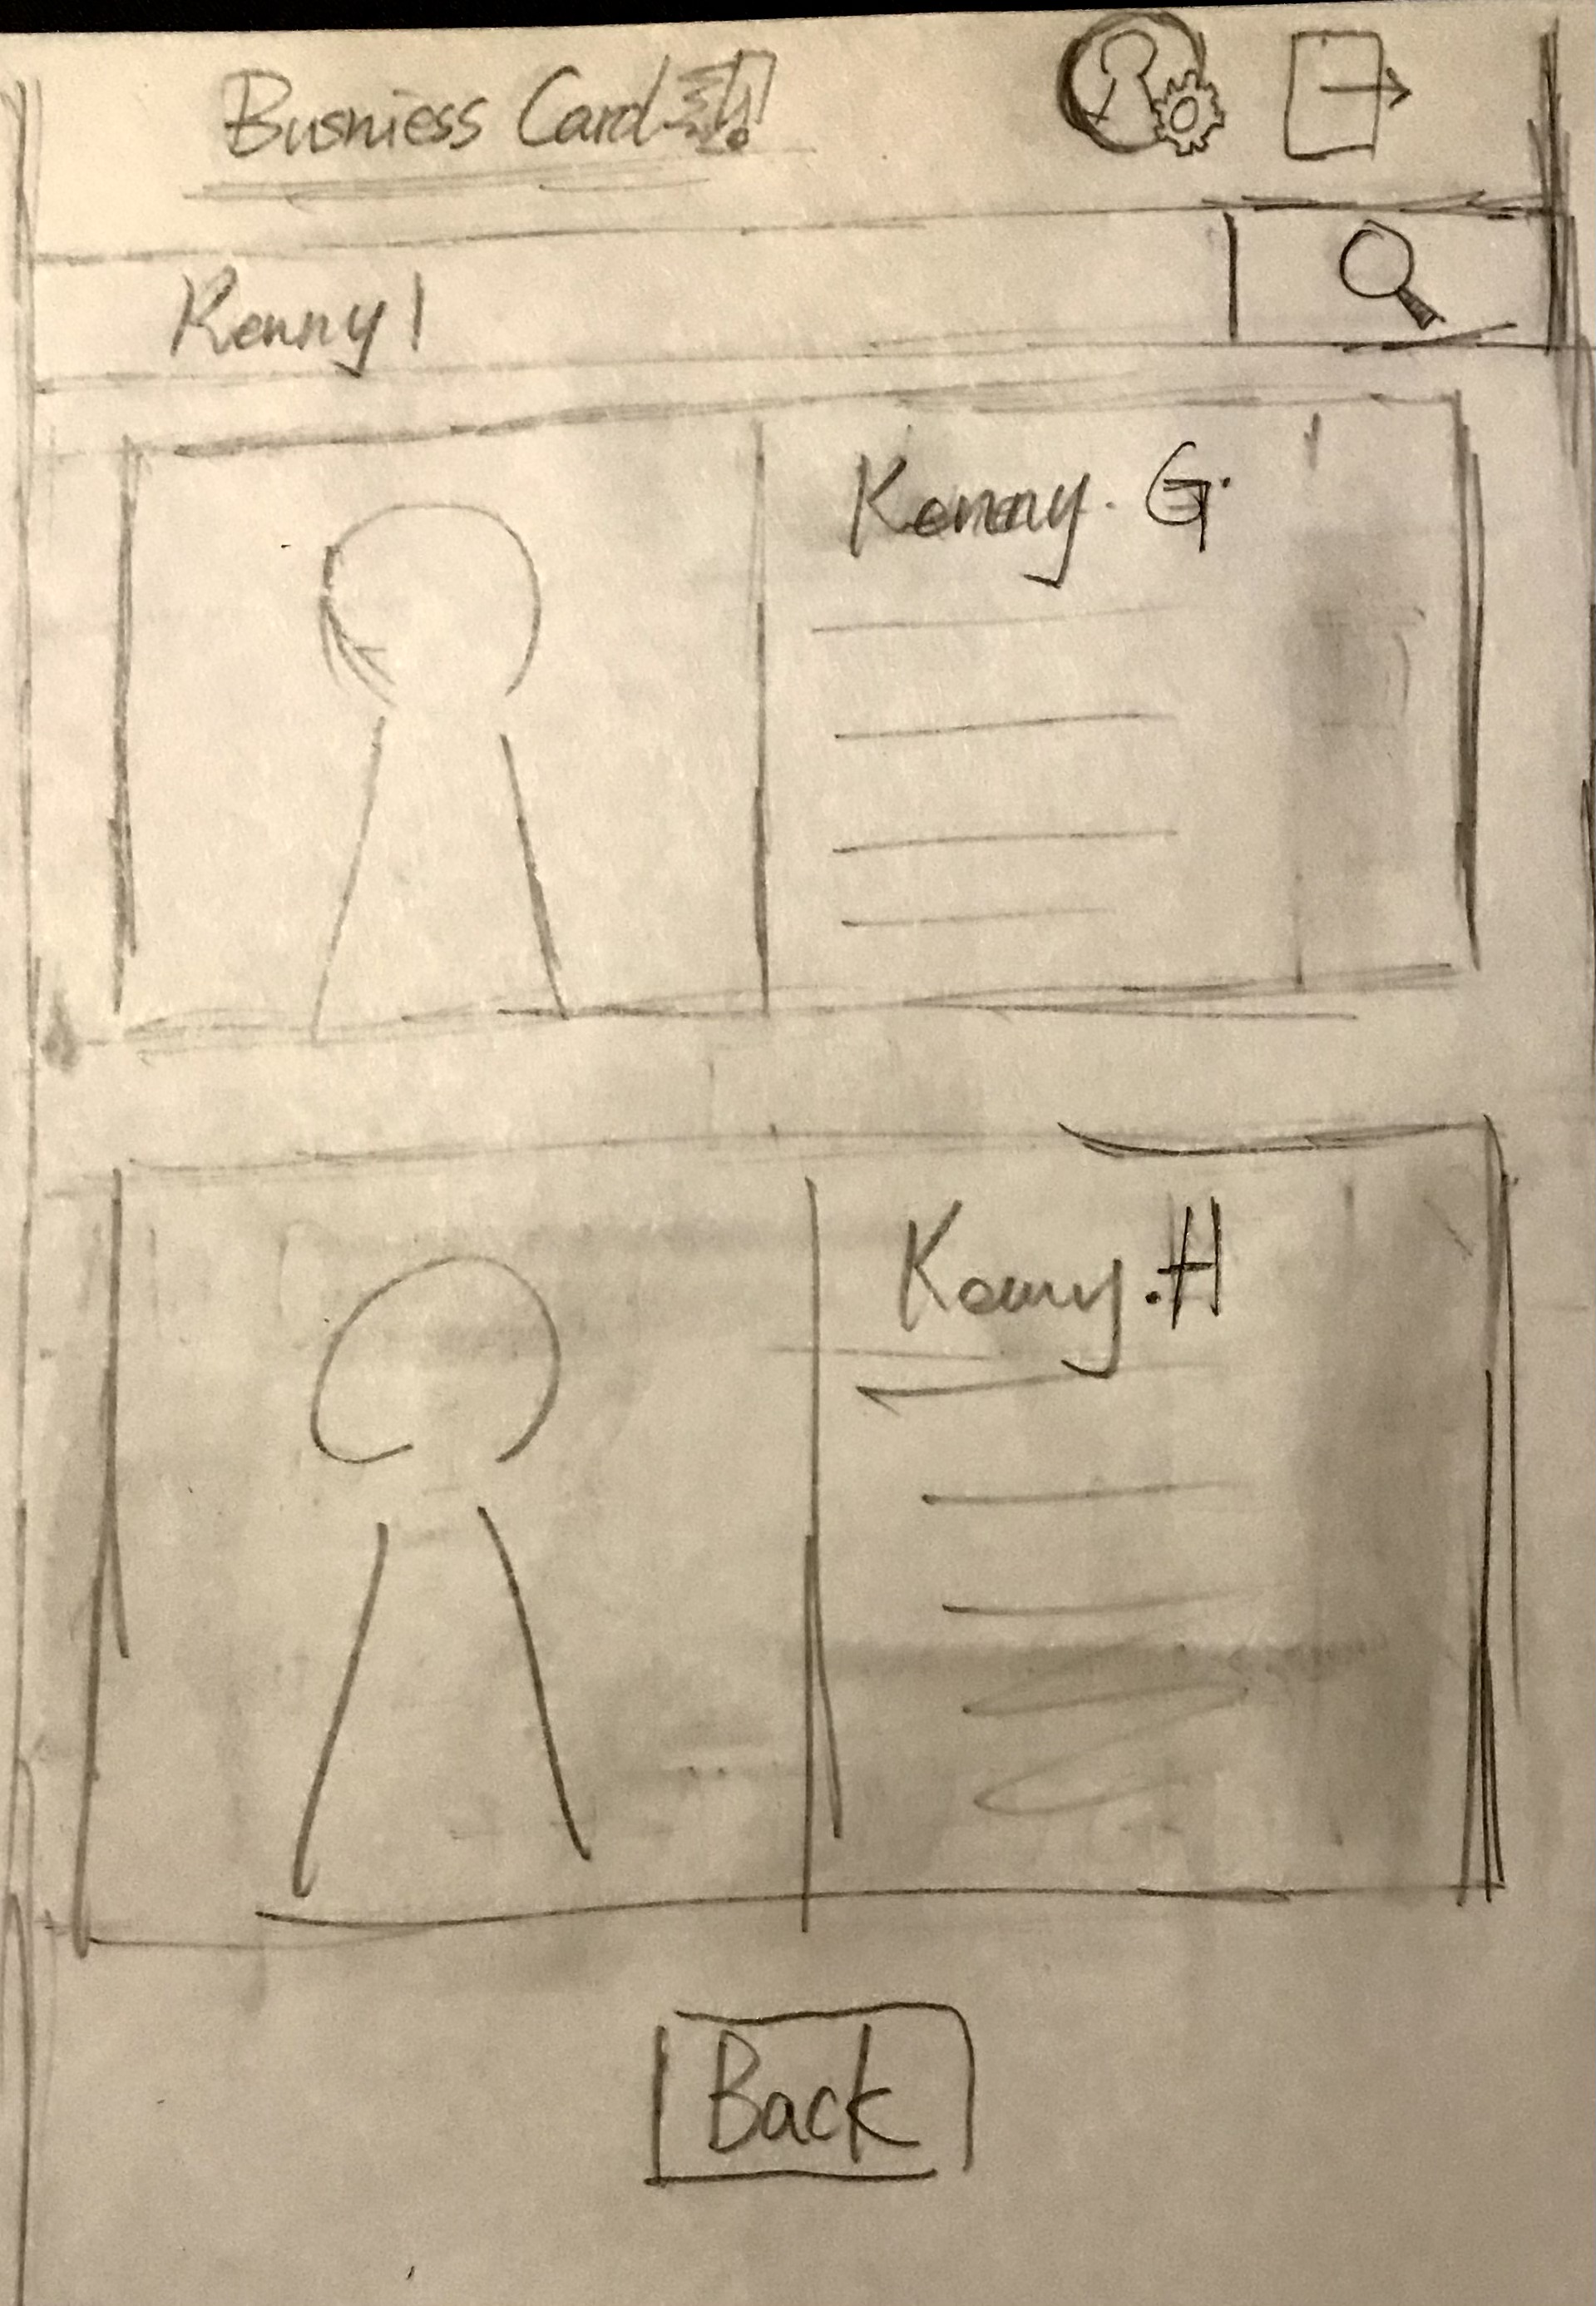 Busniess Card
Kenny|
Kenny. G.
Kenny.H
Back